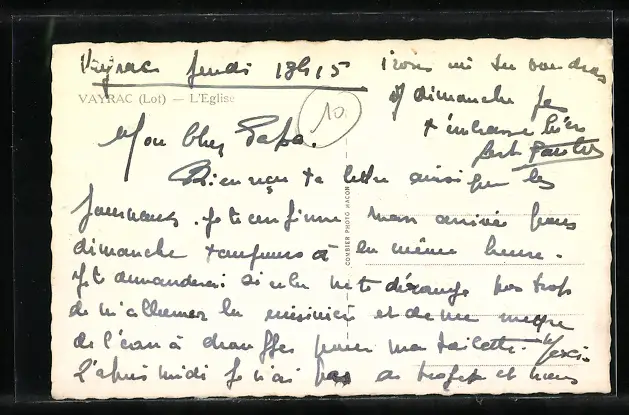 Vayrac Jeudi 18h15
VAYRAC (Lot) — L'Eglise
10
Mon Cher Papa.
Bien reçu ta lettre ainsi que les
journaux. Je te confirme mon arrivée pour
dimanche toujours à la même heure.
Je te demanderai si cela ne te dérange pas trop
de m'allumer la cuisinière et de me mettre
de l'eau à chauffer pour ma toilette. Merci.
L'après midi je n'ai pas de projet et nous
irons où tu voudras
à dimanche je
t'embrasse bien
fort
COMBIER PHOTO MACON